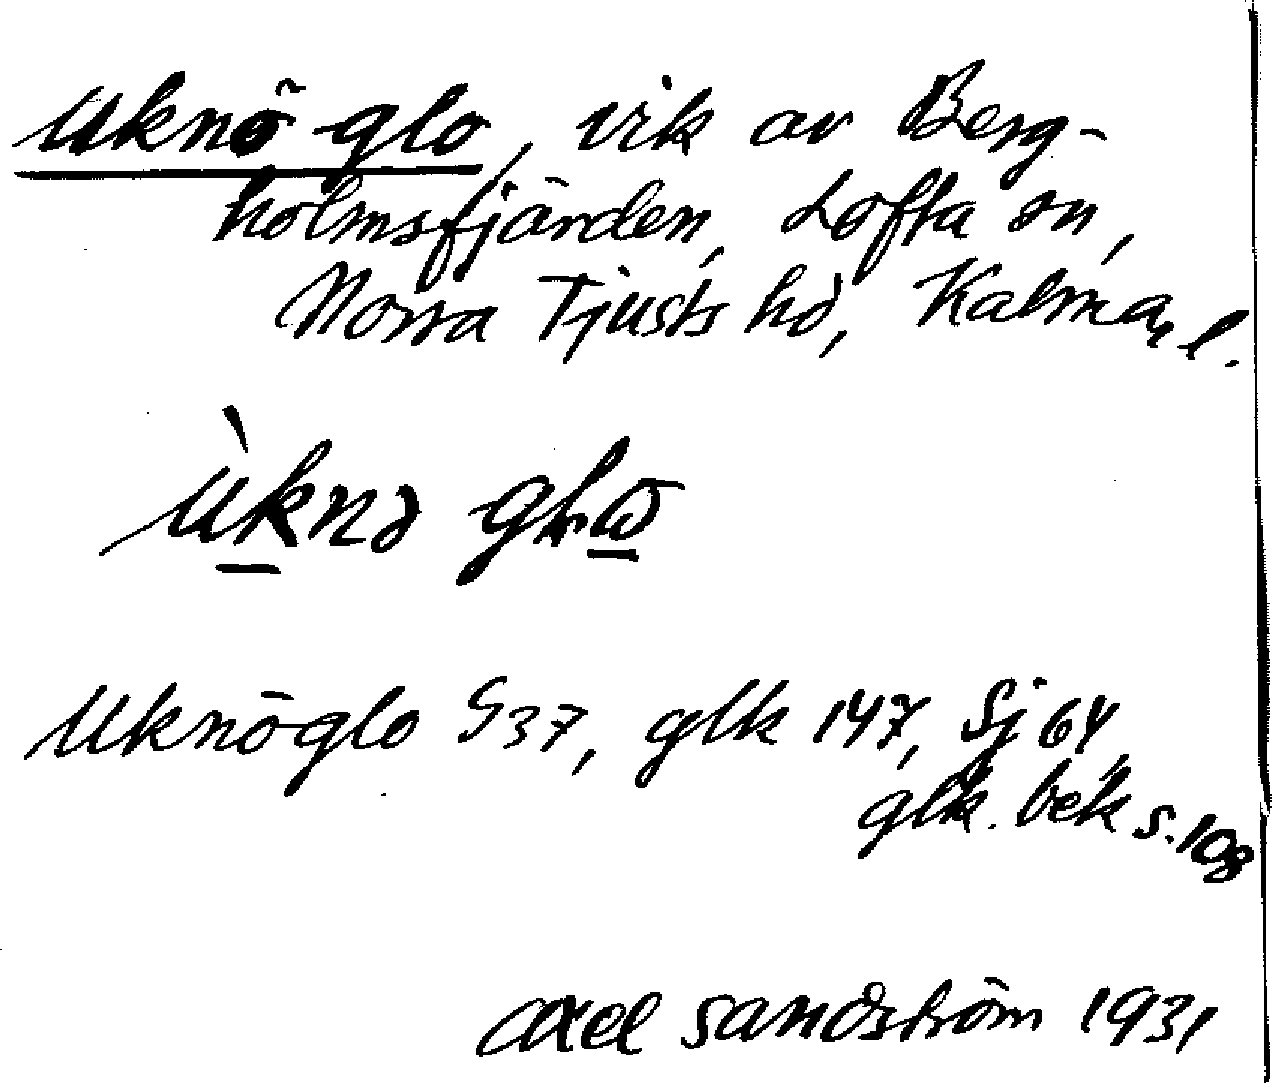 Uknö glo, vik av Berg-
holmsfjärden, Lofta sn,
Norra Tjusts hd, Kalmar l.
ùknə
Uknöglo S37, glk 147, Sj 64,
glk. bek s. 108
Axel Sandström 1931